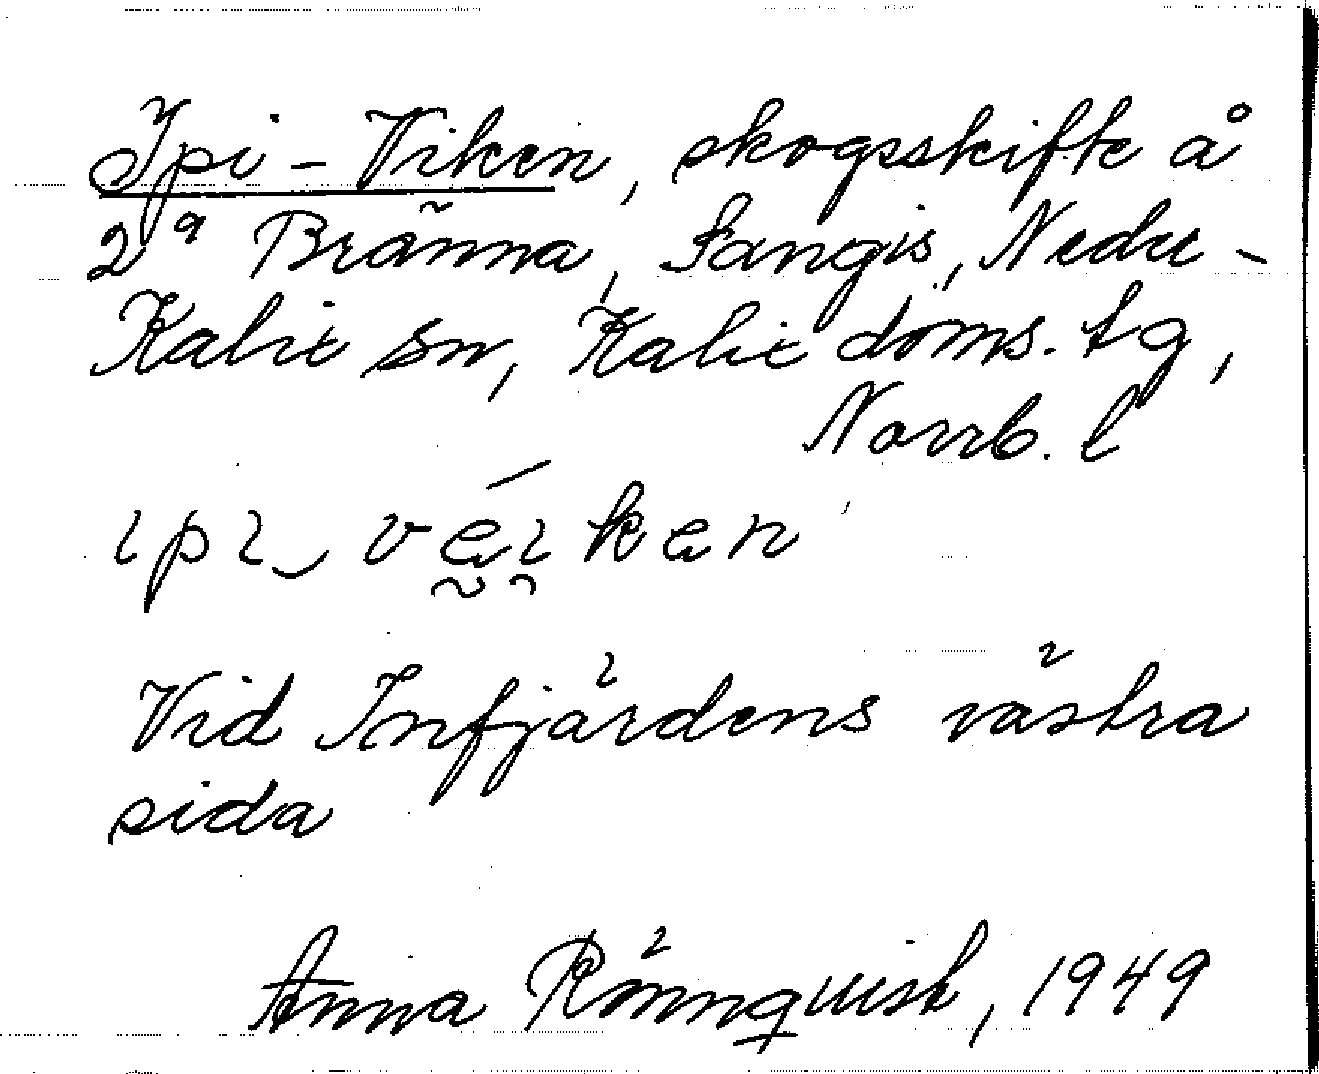 Ypi-Viken, skogsskifte å
2ª Bränna, Sangis, Neder-
Kalix sn, Kalix doms. tg,
Norrb. l
ıpı‿véıken
Vid Infjärdens västra
sida
Anna Rönnquist, 1949